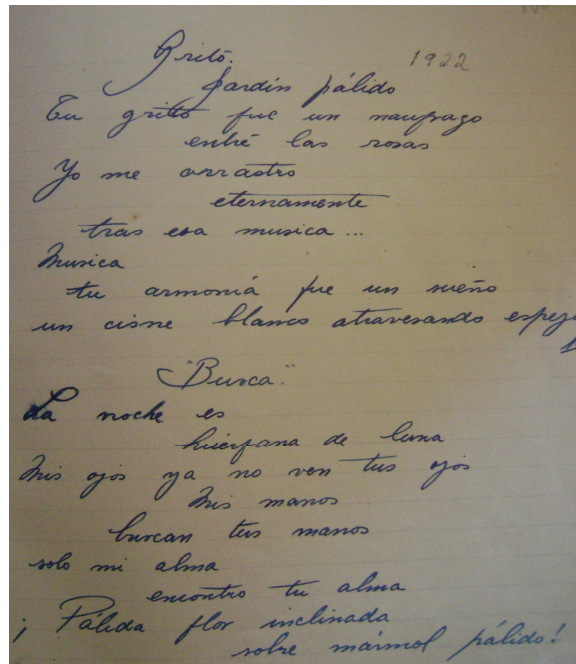 Grito. 1922
Jardin pálido
Tu grito fue un naufrago
entré las rosas
Yo me arrastro
eternamente
tras esa musica...
Musica
tu armoniá fue un sueño
un cisne blanco atravesando
"Busca".
La noche es
huerfana de luna
Mis ojos ya no ven tus ojos
Mis manos
buscan tus manos
solo mi alma
encontro tu alma
¡Pálida flor inclinada
sobre mármol pálido!